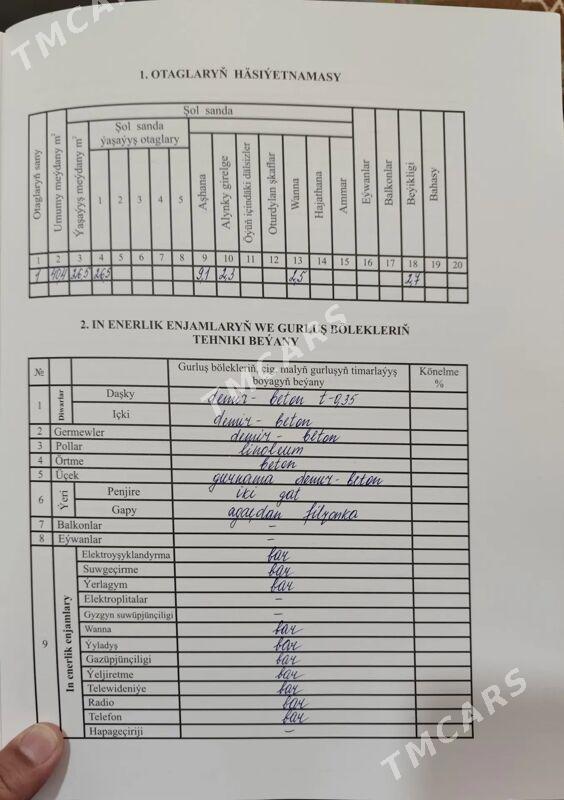 TMCARS
1. OTAGLARYŇ HÄSIÝETNAMASY
Otaglaryň sany
Umumy meýdany m²
Ýaşaýyş meýdany m²
Şol sanda
Şol sanda ýaşaýyş otaglary
1 2 3 4 5
Aşhana
Alynky girelge
Öýüň içindäki dälsizler
Oturdylan şkaflar
Wanna
Hajathana
Ammar
Eýwanlar
Balkonlar
Beýikligi
Bahasy
1 2 3 4 5 6 7 8 9 10 11 12 13 14 15 16 17 18 19 20
1 40,4 26,5 26,5 9,1 2,3 2,5 2,7
2. IN ENERLIK ENJAMLARYŇ WE GURLUŞ BÖLEKLERIŇ
TEHNIKI BEÝANY
№ Gurluş bölekleriň, çig. malyň gurluşyň timarlaýyş boyagyň beýany Könelme %
TMCARS
1 Diwarlar Daşky demir- beton t-0,35
Içki demir- beton
2 Germewler demir- beton
3 Pollar linoleum
4 Örtme beton
5 Üçek gurnama demir-beton
6 Ýeri Penjire iki gat
Gapy agaçdan filýonka
7 Balkonlar –
8 Eýwanlar –
9 In enerlik enjamlary Elektroyşyklandyrma bar
Suwgeçirme bar
Ýerlagym bar
Elektroplitalar –
Gyzgyn suwüpjünçiligi –
Wanna bar
Ýyladyş bar
Gazüpjünçiligi bar
Ýeljiretme bar
Telewideniýe bar
Radio bar
Telefon bar
Hapageçiriji –
TMCARS